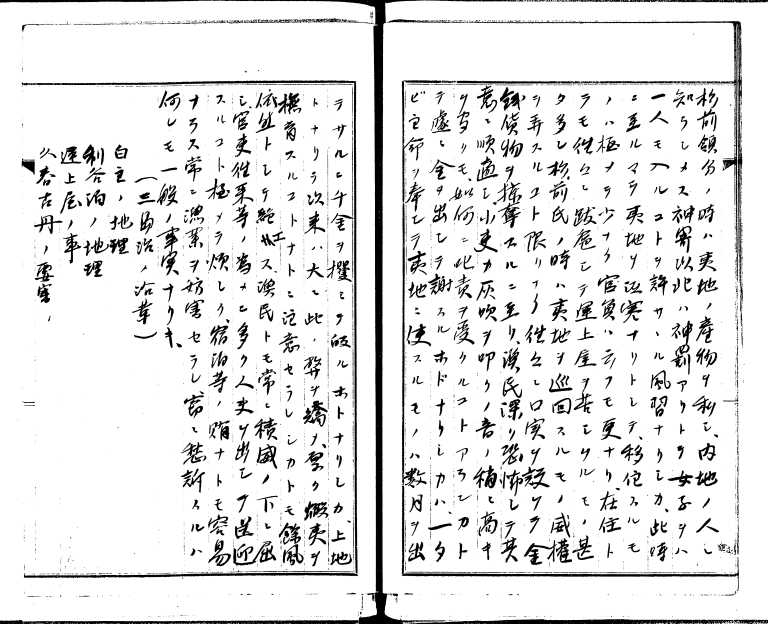 松前領分ノ時ハ夷地ノ産物ヲ利シ、内地ノ人ニ
知ラシメス神罰以北ハ神罰アリトテ女子ヲハ
一人モ入ルコトヲ許サヽル風習ナリシカ、此時
ニ至ルマテ夷地ヲ沍寒ナリトシテ、移住スルモ
ノハ極メテ少ナク官員ハ云フモ更ナリ、在住ト
ラモ往々ニ跋扈シテ運上屋ヲ苦シムルモノ甚
タ多シ、松前氏ノ時ハ夷地ヲ巡回スルモノ威権
ヲ弄スルコト限リナク往々ニ口実ヲ設ケテ金
銭貨物ヲ掠奪スルニ至リ、漁民深ク恐怖シテ其
意ニ順適シ、小吏カ灰吹ヲ叩クノ音ノ稍ヤ高キ
ヲ当リモ、如何ニ此責ヲ受クルコトアランカト
テ遽ニ金ヲ出シテ謝スルホドナリシカハ、一タ
ビ主命ヲ奉シテ夷地ニ使スルモノハ数月ヲ出
ラサルニ千金ヲ攫ミテ皈ルホトナリシカ、上地
トナリテ以来ハ大ニ此ノ弊ヲ矯メ、堅ク蝦夷ヲ
撫育スルコトナトニ注意セラレシカトモ餘風
依然トシテ絶エス、漁民トモ常ニ積威ノ下ニ屈
シ、官吏往来等ノ為メニ多クノ人夫ヲ出シテ送迎
スルコト極メテ煩シク、宿泊等ノ賄ナトモ容易
ナラス常ニ漁業ヲ妨害セラレ窃ニ愁訴スルハ
何レモ一般ノ事実ナリキ、
(三百治ノ沿革)
白主ノ地理
利谷泊ノ地理
運上屋ノ事
久春古丹ノ要害、